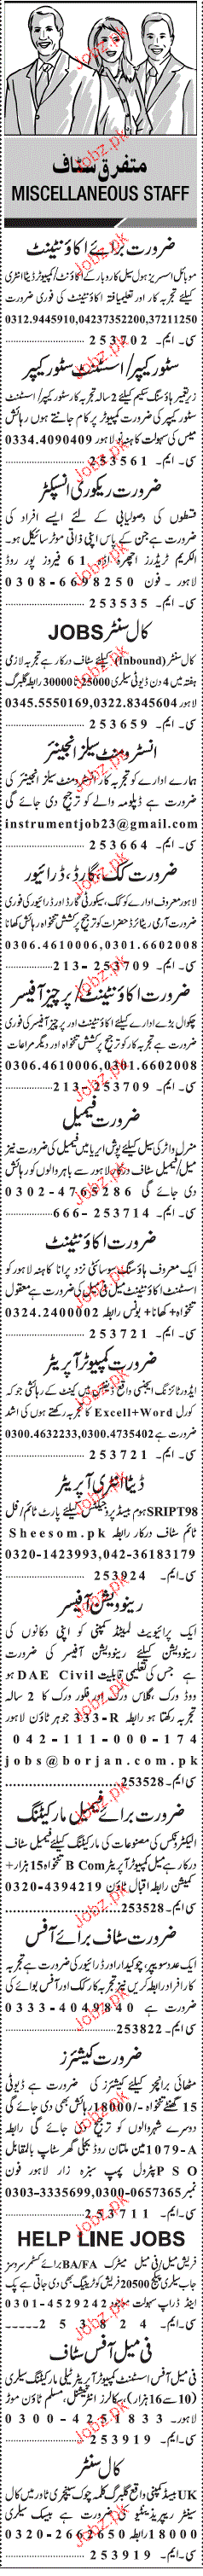 متفرق سٹاف
MISCELLANEOUS STAFF
ضرورت برائے اکاؤنٹینٹ
موبائل اسسریز ہول سیل کاروبار کے اکاؤنٹ/کمپیوٹر ڈیٹا انٹری
کیلئے تجربہ کار اور تعلیمیافتہ اکاؤنٹینٹ کی فوری ضرورت
0312.9445910,04237352200,37211250
سی۔ایم۔ 253202
سٹور کیپر/اسسٹنٹ سٹور کیپر
زیر تعمیر ہاؤسنگ سکیم کیلئے 2 سالہ تجربہ کار سٹور کیپر/اسسٹنٹ
سٹور کیپر کی ضرورت کمپیوٹر پر کام جانتے ہوں رہائش
میس کی سہولت کا ہنہ نو لاہور 0334.4090409
سی۔ایم۔ 253561
ضرورت ریکوری انسپکٹر
قسطوں کی وصولیابی کے لئے ایسے افراد کی
ضرورت ہے جن کے پاس اپنی ذاتی موٹر سائیکل ہو۔
الکریم ٹریڈرز اچھرہ 61 فیروز پور روڈ
لاہور۔ فون 0308-6698250
سی۔ایم۔ 253535
کال سنٹر JOBS
کال سنٹر (Inbound) کیلئے سٹاف درکار ہے تجربہ لازمی
ہفتہ میں 4 دن ڈیوٹی سیلری 25000-30000 رابطہ گلبرگ
لاہور 0345.5550169,0322.8345604
سی۔ایم۔ 253659
انسٹرومنٹ سیلز انجینئر
ہمارے ادارے کو تجربہ کار انسٹرومنٹ سیلز انجینئر کی
ضرورت ہے ڈپلومہ والے کو ترجیح دی جائے گی
instrumentjob23@gmail.com
سی۔ایم۔ 253664
ضرورت کک، گارڈ، ڈرائیور
لاہور معروف ادارے کو کک، سیکورٹی گارڈ اور ڈرائیور کی فوری
ضرورت آرمی ریٹائرڈ حضرات کو ترجیح پرکشش تنخواہ رہائش کھانا
0306.4610006,0301.6602008
سی۔ایم۔ 253709-213
ضرورت اکاؤنٹینٹ/پرچیز آفیسر
چکوال بڑے ادارے کیلئے اکاؤنٹینٹ اور پرچیز آفیسر کی فوری
ضرورت ہے تجربہ کار کو ترجیح پرکشش تنخواہ اور دیگر مراعات
0306.4610006,0301.6602008
سی۔ایم۔ 253709-213
ضرورت فیمیل
منرل واٹر کی سیل کیلئے پوش ایریا میں فیمیل کی ضرورت نیز
میل/فیمیل سٹاف درکار لاہور سے باہر والوں کو رہائش
دی جائے گی 0302-4765286
سی۔ایم۔ 253714-666
ضرورت اکاؤنٹینٹ
ایک معروف ہاؤسنگ سوسائٹی نزد پرانا کاہنہ لاہور کو
اسسٹنٹ اکاؤنٹینٹ میل فیمیل کی ضرورت ہے معقول
تنخواہ + کھانا + بونس رابطہ 0324.2400002
سی۔ایم۔ 253721
ضرورت کمپیوٹر آپریٹر
ایڈورٹائزنگ ایجنسی واقع ڈیفنس میں کینٹ کے رہائش جو کہ
کورل Excell+Word کا تجربہ رکھتے ہوں کی اشد
ضرورت ہے 0300.4632233,0300.4735402
سی۔ایم۔ 253721
ڈیٹا انٹری آپریٹر
SRIPT98 ہوم بیسڈ پروجیکٹس کیلئے پارٹ ٹائم/فل
ٹائم سٹاف درکار رابطہ Sheesom.pk
0320-1423993,042-36183179
سی۔ایم۔ 253924
رینوویشن آفیسر
ایک پرائیویٹ لمیٹڈ کمپنی کو اپنی دکانوں کی
رینوویشن کیلئے رینوویشن آفیسر کی ضرورت
ہے جس کی تعلیمی قابلیت DAE Civil ہو
ووڈ ورک، گلاس ورک اور فلور ورک کا 2 سالہ
تجربہ رکھتا ہو رابطہ 333-R جوہر ٹاؤن لاہور
042-111-000-174
jobs@borjan.com.pk
سی ایم۔ 253528
ضرورت برائے فیمیل مارکیٹنگ
الیکٹرونکس کی مصنوعات کی مارکیٹنگ کیلئے فیمیل سٹاف
درکار ہے میل کمپیوٹر آپریٹر B Com تنخواہ 15 ہزار +
کمیشن رابطہ اقبال ٹاؤن 0320-4394219
سی ایم۔ 253528
ضرورت سٹاف برائے آفس
ایک عدد سویپر، چوکیدار اور ڈرائیور کی ضرورت ہے تجربہ
کار افراد رابطہ کریں نیز تجربہ کار کک اور آفس بوائے کی
ضرورت ہے 0333-4049840
سی ایم۔ 253822
ضرورت کیشئرز
مٹھائی برانچز کیلئے کیشئرز کی ضرورت ہے ڈیوٹی
15 گھنٹے تنخواہ -/18000 رہائش بھی دی جائے گی
دوسرے شہر والوں کو ترجیح دی جائے گی رابطہ
1079-A مین ملتان روڈ بجلی گھر سٹاپ بالمقابل
PSO پٹرول پمپ سبزہ زار لاہور فون
نمبر 0303-3335699,0300-0657365
سی ایم۔ 253711
HELP LINE JOBS
فریش میل/فی میل میٹرک BA/FA برائے کسٹمر سروسز
جاب سیلری پیکیج 20500 فریش کو ٹریننگ بھی دی جاتی ہے پک
اینڈ ڈراپ سہولت 0301-4529242
سی۔ایم۔ 253824
فی میل آفس سٹاف
فی میل آفس اسسٹنٹ کمپیوٹر آپریٹر ٹیلی مارکیٹنگ سیلری
(10 سے 16 ہزار)، سکالرز انٹرنیشنل، مسلم ٹاؤن موڑ
لاہور۔ 0300-4251833
سی۔ایم۔ 253919
کال سنٹر
UK بیسڈ کمپنی واقع گلبرگ کلمہ چوک سنچری ٹاور میں کال
سینٹر ریپریزینٹیٹو کی ضرورت ہے بیسک سیلری
18000 رابطہ 0320-2662650
سی۔ایم۔ 253919
Jobz.pk